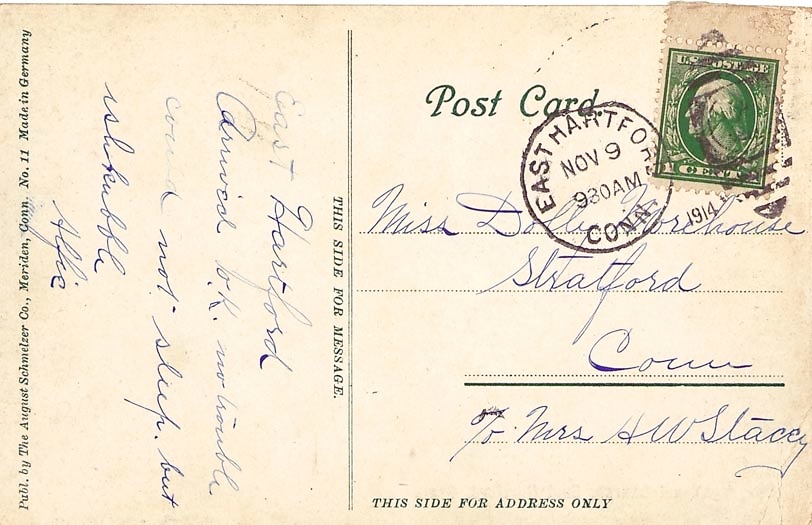 Post Card
U.S. POSTAGE
1 CENT 1
EAST HARTFORD
NOV 9
930AM
1914
CONN.
Miss Dolly Morehouse
Stratford
Conn
c/o Mrs H W Stacey
THIS SIDE FOR ADDRESS ONLY
THIS SIDE FOR MESSAGE.
East Hartford
Arrived O.K. no trouble
coud not sleep. but
ishkabble
Alfie
Publ. by The August Schmelzer Co., Meriden, Conn. No. 11 Made in Germany